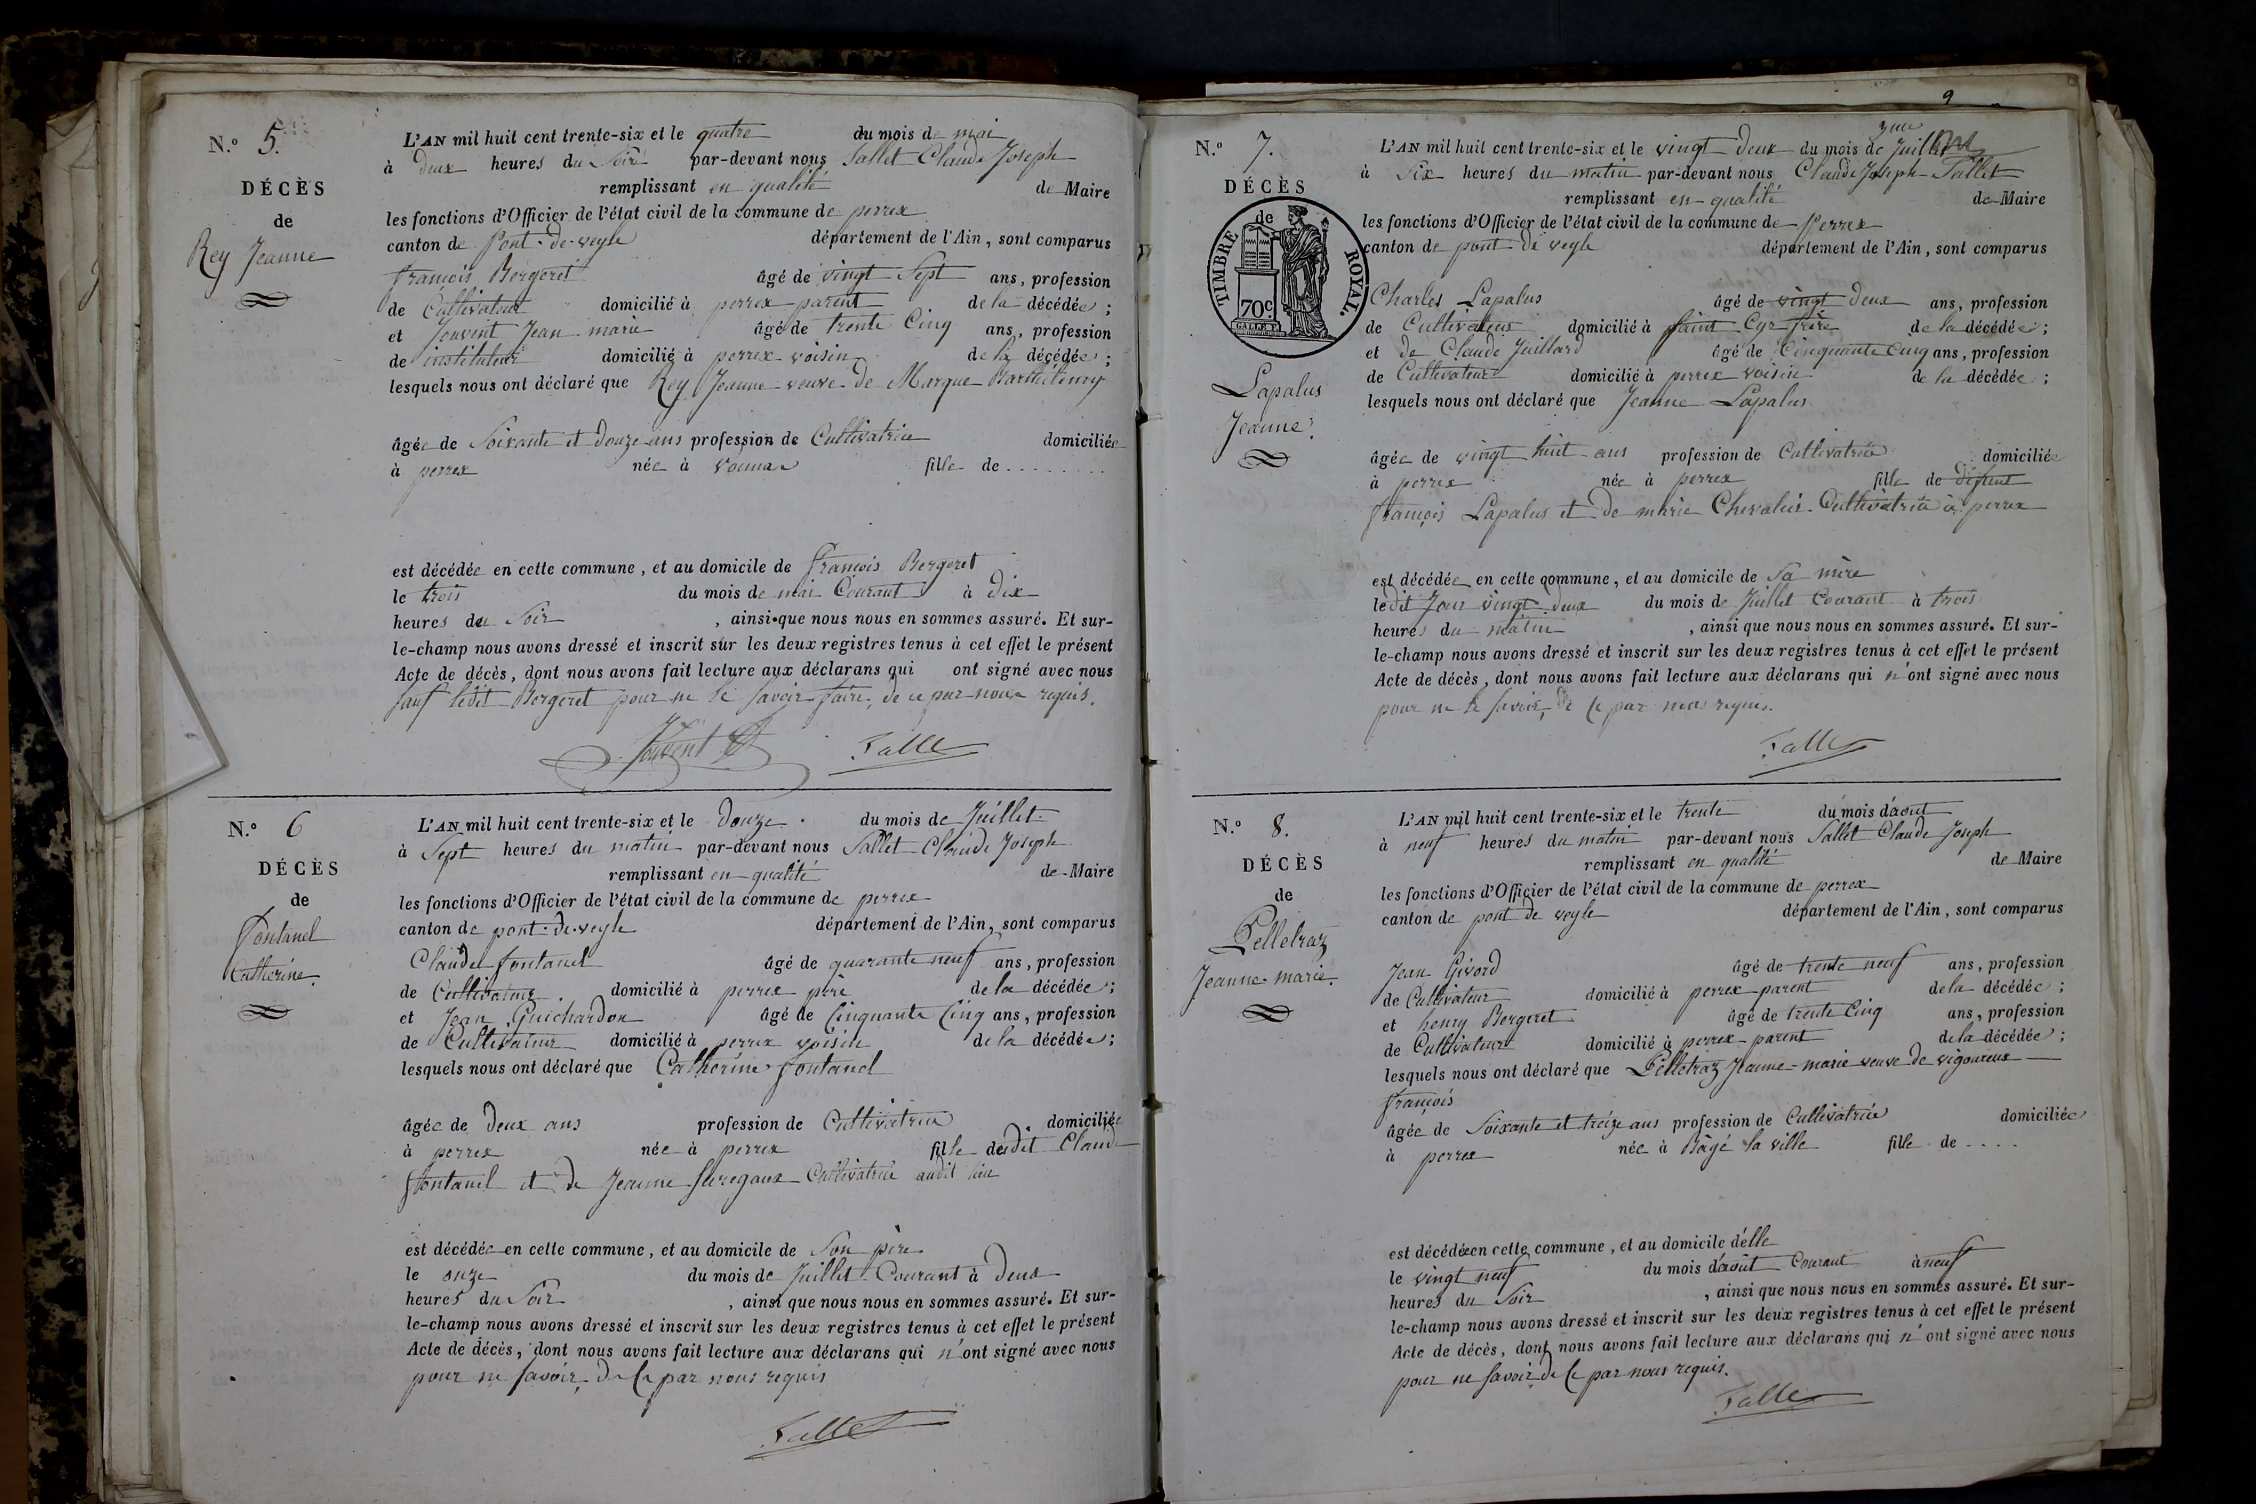 N.o 5.
DÉCÈS
de
Rey Jeanne
L'AN mil huit cent trente-six et le quatre du mois de mai
à deux heures du Soir par-devant nous Sallet Claude Joseph
remplissant en qualité de Maire
les fonctions d'Officier de l'état civil de la commune de perrex
canton de Pont-de-veyle département de l'Ain, sont comparus
françois Bergeret âgé de vingt Sept ans, profession
de Cultivateur domicilié à perrex parent de la décédée ;
et Jouvent Jean marie âgé de trente Cinq ans, profession
de instituteur domicilié à perrex voisin de la décédée ;
lesquels nous ont déclaré que Rey Jeanne veuve de Marque Barthélemy
âgée de Soixante et douze ans profession de Cultivatrice domiciliée
à perrex née à vonnas fille de ........
est décédée en cette commune, et au domicile de françois Bergeret
le trois du mois de mai Courant à dix
heures du Soir , ainsi que nous nous en sommes assuré. Et sur-
le-champ nous avons dressé et inscrit sur les deux registres tenus à cet effet le présent
Acte de décès, dont nous avons fait lecture aux déclarans qui ont signé avec nous
sauf ledit Bergeret pour ne le savoir faire, de ce par nous requis.
Jouvent Sallet
N.o 6
DÉCÈS
de
fontanel
Catherine.
L'AN mil huit cent trente-six et le douze du mois de Juillet
à Sept heures du matin par-devant nous Sallet Claude Joseph
remplissant en qualité de Maire
les fonctions d'Officier de l'état civil de la commune de perrex
canton de pont-de-veyle département de l'Ain, sont comparus
Claude fontanel âgé de quarante neuf ans, profession
de Cultivateur domicilié à perrex père de la décédée ;
et Jean Guichardon âgé de Cinquante Cinq ans, profession
de Cultivateur domicilié à perrex voisin de la décédée ;
lesquels nous ont déclaré que Catherine fontanel
âgée de deux ans profession de Cultivatrice domiciliée
à perrex née à perrex fille dudit Claude
fontanel et de Jeanne Cultivatrice audit lieu
est décédée en cette commune, et au domicile de Son père
le onze du mois de Juillet Courant à deux
heures du Soir , ainsi que nous nous en sommes assuré. Et sur-
le-champ nous avons dressé et inscrit sur les deux registres tenus à cet effet le présent
Acte de décès, dont nous avons fait lecture aux déclarans qui n'ont signé avec nous
pour ne savoir, de ce par nous requis
Sallet
9
N.o 7.
DÉCÈS
de
TIMBRE ROYAL.
70c
Lapalus
Jeanne.
L'AN mil huit cent trente-six et le vingt deux du mois de Juillet
à Six heures du matin par-devant nous Claude Joseph Sallet
remplissant en qualité de Maire
les fonctions d'Officier de l'état civil de la commune de perrex
canton de pont de veyle département de l'Ain, sont comparus
Charles Lapalus âgé de vingt deux ans, profession
de Cultivateur domicilié à Saint Cyr frère de la décédée ;
et de Claude Juillard âgé de Cinquante Cinq ans, profession
de Cultivateur domicilié à perrex voisin de la décédée ;
lesquels nous ont déclaré que Jeanne Lapalus
âgée de vingt huit ans profession de Cultivatrice domiciliée
à perrex née à perrex fille de défunt
françois Lapalus et de marie Chevalier Cultivatrice à perrex
est décédée en cette commune, et au domicile de Sa mère
ledit Jour vingt deux du mois de Juillet Courant à trois
heures du matin , ainsi que nous nous en sommes assuré. Et sur-
le-champ nous avons dressé et inscrit sur les deux registres tenus à cet effet le présent
Acte de décès, dont nous avons fait lecture aux déclarans qui n'ont signé avec nous
pour ne le savoir, de ce par nous requis.
Sallet
N.o 8.
DÉCÈS
de
Pelletraz
Jeanne-marie.
L'AN mil huit cent trente-six et le trente du mois d'août
à neuf heures du matin par-devant nous Sallet Claude Joseph
remplissant en qualité de Maire
les fonctions d'Officier de l'état civil de la commune de perrex
canton de pont de veyle département de l'Ain, sont comparus
Jean Givord âgé de trente neuf ans, profession
de Cultivateur domicilié à perrex parent de la décédée ;
et henry Bergeret âgé de trente Cinq ans, profession
de Cultivateur domicilié à perrex parent de la décédée ;
lesquels nous ont déclaré que Pelletraz Jeanne-marie veuve de vigoureux
françois
âgée de Soixante et treize ans profession de Cultivatrice domiciliée
à perrex née à Bâgé la ville fille de ....
est décédée en cette commune, et au domicile d'elle
le vingt neuf du mois d'août Courant à neuf
heures du Soir , ainsi que nous nous en sommes assuré. Et sur-
le-champ nous avons dressé et inscrit sur les deux registres tenus à cet effet le présent
Acte de décès, dont nous avons fait lecture aux déclarans qui n'ont signé avec nous
pour ne savoir de ce par nous requis.
Sallet